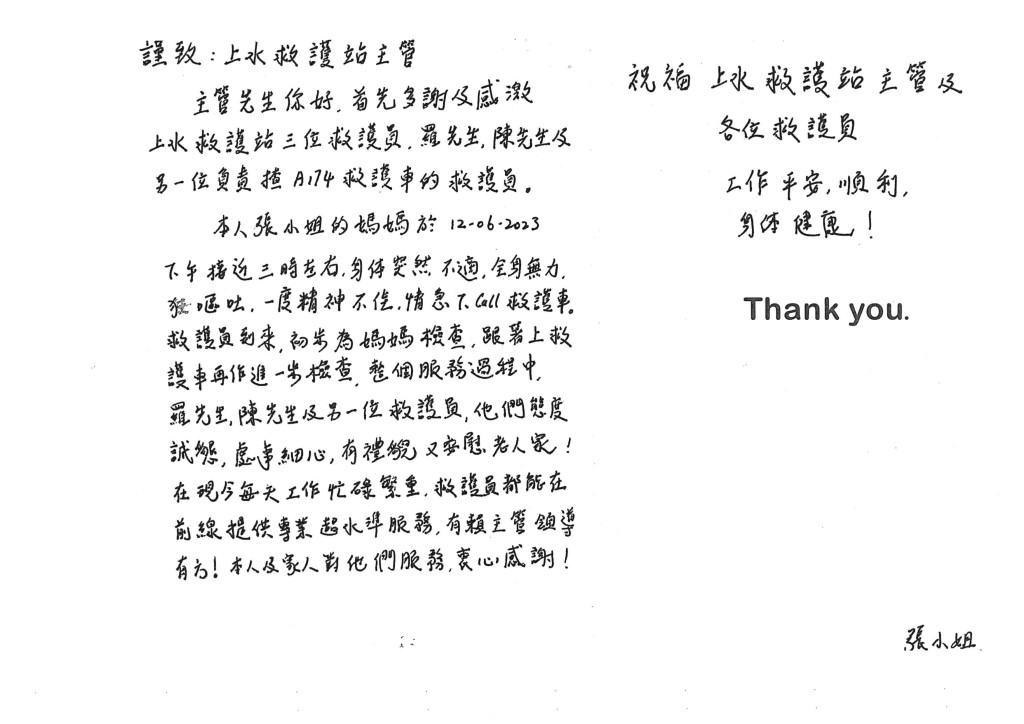 謹致：上水救護站主管
主管先生你好，首先多謝及感激
上水救護站三位救護員，羅先生，陳先生及
另一位負責揸A174救護車的救護員。
本人張小姐的媽媽於 12-06-2023
下午接近三時左右，身体突然不適，全身無力，
嘔吐，一度精神不佳，情急下Call救護車。
救護員到來，初步為媽媽檢查，跟著上救
護車再作進一步檢查，整個服務過程中，
羅先生，陳先生及另一位救護員，他們態度
誠懇，處事細心，有禮貌又安慰老人家！
在現今每天工作忙碌繁重，救護員都能在
前線提供專業超水準服務，有賴主管領導
有方！本人及家人對他們服務，衷心感謝！
祝福上水救護站主管及
各位救護員
工作平安，順利，
身体健康！
Thank you.
張小姐